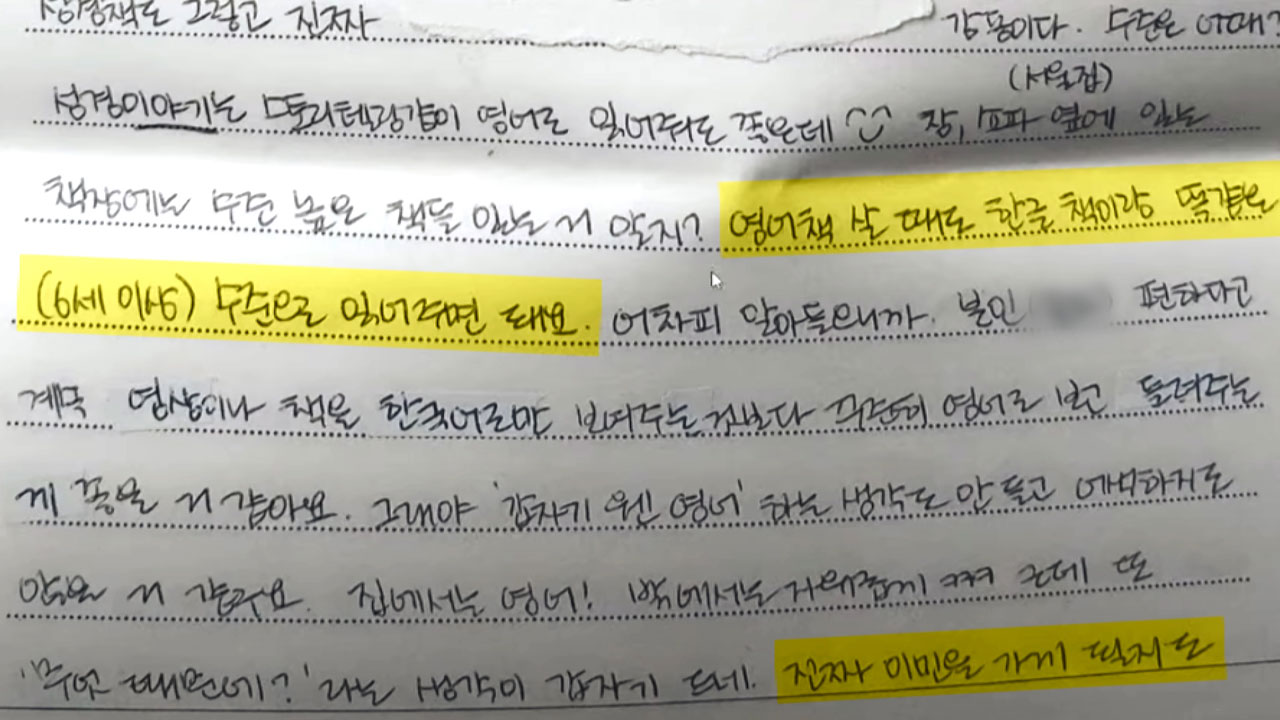 성경책도 그렇고 진짜 감동이다. 수준은 어때?
(서울집)
성경이야기는 스토리텔링같이 영어로 읽어줘도 좋은데 소파 옆에 있는
책장에는 수준 높은 책들 있는 거 알지? 영어책 살 때도 한글 책이랑 똑같은
(6세 이상) 수준으로 읽어주면 돼요. 어차피 알아들으니까. 본인 편하다고
계속 영상이나 책을 한국어로만 보여주는 것보다 꾸준히 영어로 보고 들려주는
게 좋을 거 같아요. 그래야 '갑자기 웬 영어' 하는 생각도 안 들고 어색하지도
않을 거 같구요. 집에서는 영어! 밖에서는 자유롭게 ㅋㅋ 근데 또
'무엇 때문에?' 라는 생각이 갑자기 드네. 진짜 이민을 가게 될지도